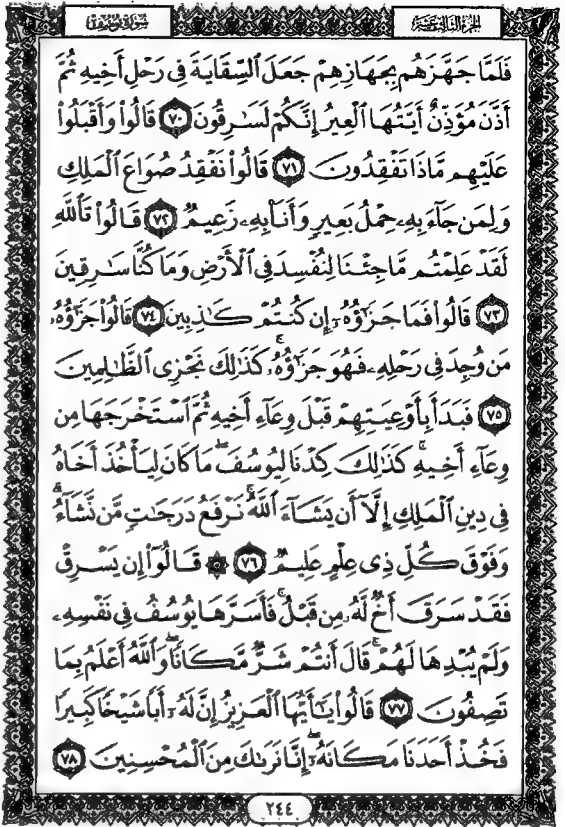 سُورَةُ يُوسُفَ
الجُزْءُ الثَّالِثَ عَشَرَ
فَلَمَّا جَهَّزَهُم بِجَهَازِهِمْ جَعَلَ ٱلسِّقَايَةَ فِى رَحْلِ أَخِيهِ ثُمَّ
أَذَّنَ مُؤَذِّنٌ أَيَّتُهَا ٱلْعِيرُ إِنَّكُمْ لَسَـٰرِقُونَ ٧٠ قَالُوا۟ وَأَقْبَلُوا۟
عَلَيْهِم مَّاذَا تَفْقِدُونَ ٧١ قَالُوا۟ نَفْقِدُ صُوَاعَ ٱلْمَلِكِ
وَلِمَن جَآءَ بِهِۦ حِمْلُ بَعِيرٍ وَأَنَا۠ بِهِۦ زَعِيمٌ ٧٢ قَالُوا۟ تَٱللَّهِ
لَقَدْ عَلِمْتُم مَّا جِئْنَا لِنُفْسِدَ فِى ٱلْأَرْضِ وَمَا كُنَّا سَـٰرِقِينَ
٧٣ قَالُوا۟ فَمَا جَزَٰٓؤُهُۥٓ إِن كُنتُمْ كَـٰذِبِينَ ٧٤ قَالُوا۟ جَزَٰٓؤُهُۥ
مَن وُجِدَ فِى رَحْلِهِۦ فَهُوَ جَزَٰٓؤُهُۥ ۚ كَذَٰلِكَ نَجْزِى ٱلظَّـٰلِمِينَ
٧٥ فَبَدَأَ بِأَوْعِيَتِهِمْ قَبْلَ وِعَآءِ أَخِيهِ ثُمَّ ٱسْتَخْرَجَهَا مِن
وِعَآءِ أَخِيهِ ۚ كَذَٰلِكَ كِدْنَا لِيُوسُفَ ۖ مَا كَانَ لِيَأْخُذَ أَخَاهُ
فِى دِينِ ٱلْمَلِكِ إِلَّآ أَن يَشَآءَ ٱللَّهُ ۚ نَرْفَعُ دَرَجَـٰتٍ مَّن نَّشَآءُ ۗ
وَفَوْقَ كُلِّ ذِى عِلْمٍ عَلِيمٌ ٧٦ ۞ قَالُوٓا۟ إِن يَسْرِقْ
فَقَدْ سَرَقَ أَخٌ لَّهُۥ مِن قَبْلُ ۚ فَأَسَرَّهَا يُوسُفُ فِى نَفْسِهِۦ
وَلَمْ يُبْدِهَا لَهُمْ ۚ قَالَ أَنتُمْ شَرٌّ مَّكَانًا ۖ وَٱللَّهُ أَعْلَمُ بِمَا
تَصِفُونَ ٧٧ قَالُوا۟ يَـٰٓأَيُّهَا ٱلْعَزِيزُ إِنَّ لَهُۥٓ أَبًا شَيْخًا كَبِيرًا
فَخُذْ أَحَدَنَا مَكَانَهُۥٓ ۖ إِنَّا نَرَىٰكَ مِنَ ٱلْمُحْسِنِينَ ٧٨
٢٤٤